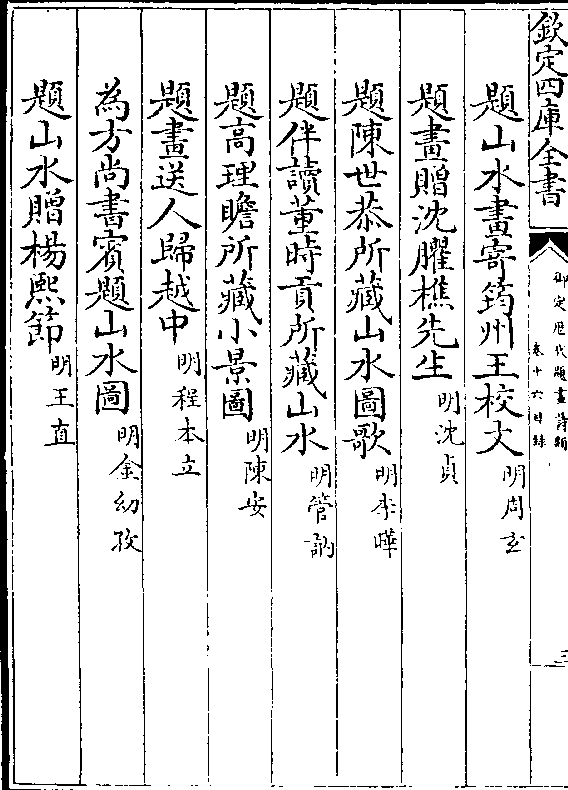 欽定四庫全書
御定歷代題畫詩類
卷十六目錄
三
題山水畫寄筠州王校文 明周玄
題畫贈沈臞樵先生 明沈貞
題陳世恭所藏山水圖歌 明李曄
題伴讀董時貢所藏山水 明管訥
題高理瞻所藏小景圖 明陳安
題畫送人歸越中 明程本立
為方尚書賓題山水圖 明金幼孜
題山水贈楊熈節 明王直